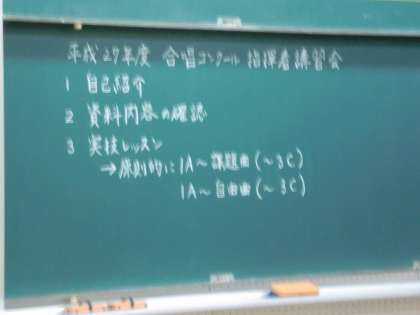 平成27年度 合唱コンクール 指揮者講習会
1 自己紹介
2 資料内容の確認
3 実技レッスン
→原則的に1A～課題曲(～3C)
1A～自由曲(～3C)